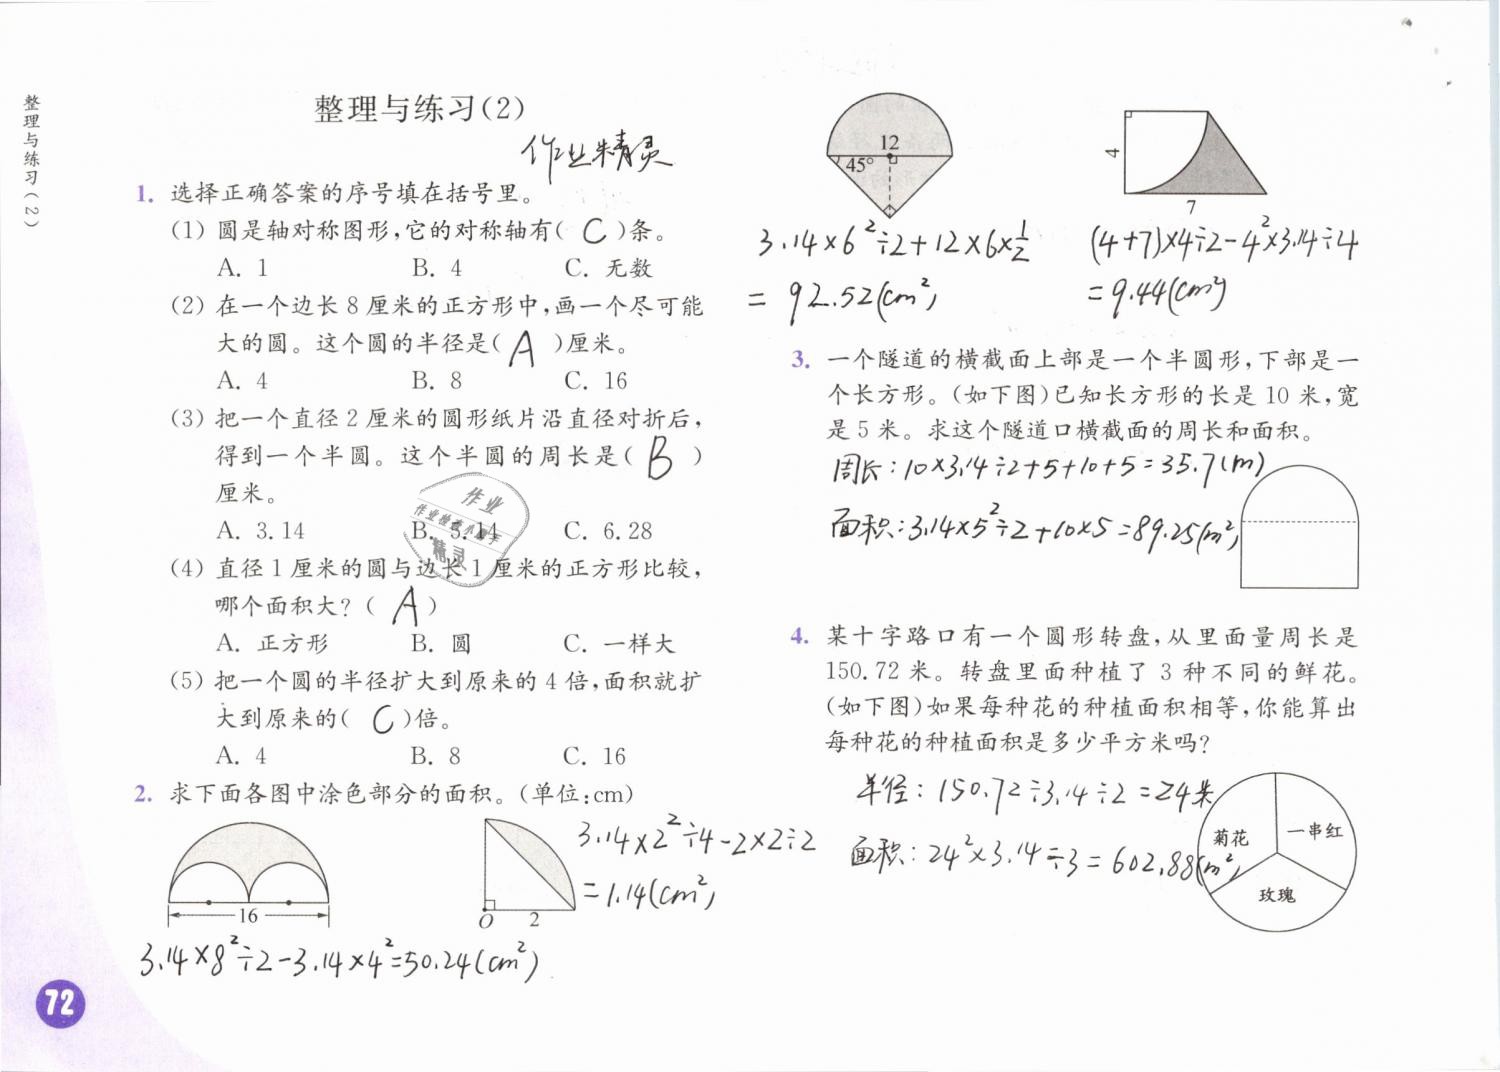 整理与练习(2)
整理与练习(2)
作业精灵
1. 选择正确答案的序号填在括号里。
(1) 圆是轴对称图形,它的对称轴有( C )条。
A. 1 B. 4 C. 无数
(2) 在一个边长 8 厘米的正方形中,画一个尽可能
大的圆。这个圆的半径是( A )厘米。
A. 4 B. 8 C. 16
(3) 把一个直径 2 厘米的圆形纸片沿直径对折后,
得到一个半圆。这个半圆的周长是( B )
厘米。
A. 3.14 B. 5.14 C. 6.28
作业
作业检查小帮手
精灵
(4) 直径 1 厘米的圆与边长 1 厘米的正方形比较,
哪个面积大?( A )
A. 正方形 B. 圆 C. 一样大
(5) 把一个圆的半径扩大到原来的 4 倍,面积就扩
大到原来的( C )倍。
A. 4 B. 8 C. 16
2. 求下面各图中涂色部分的面积。(单位:cm)
16
3.14×8²÷2-3.14×4²=50.24(cm²)
O 2
3.14×2²÷4-2×2÷2
=1.14(cm²)
12
45°
3.14×6²÷2+12×6×½
=92.52(cm²)
4
7
(4+7)×4÷2-4²×3.14÷4
=9.44(cm²)
3. 一个隧道的横截面上部是一个半圆形,下部是一
个长方形。(如下图)已知长方形的长是 10 米,宽
是 5 米。求这个隧道口横截面的周长和面积。
周长:10×3.14÷2+5+10+5=35.7(m)
面积:3.14×5²÷2+10×5=89.25(m²)
4. 某十字路口有一个圆形转盘,从里面量周长是
150.72 米。转盘里面种植了 3 种不同的鲜花。
(如下图)如果每种花的种植面积相等,你能算出
每种花的种植面积是多少平方米吗?
半径:150.72÷3.14÷2=24米
面积:24²×3.14÷3=602.88(m²)
菊花 一串红
玫瑰
72